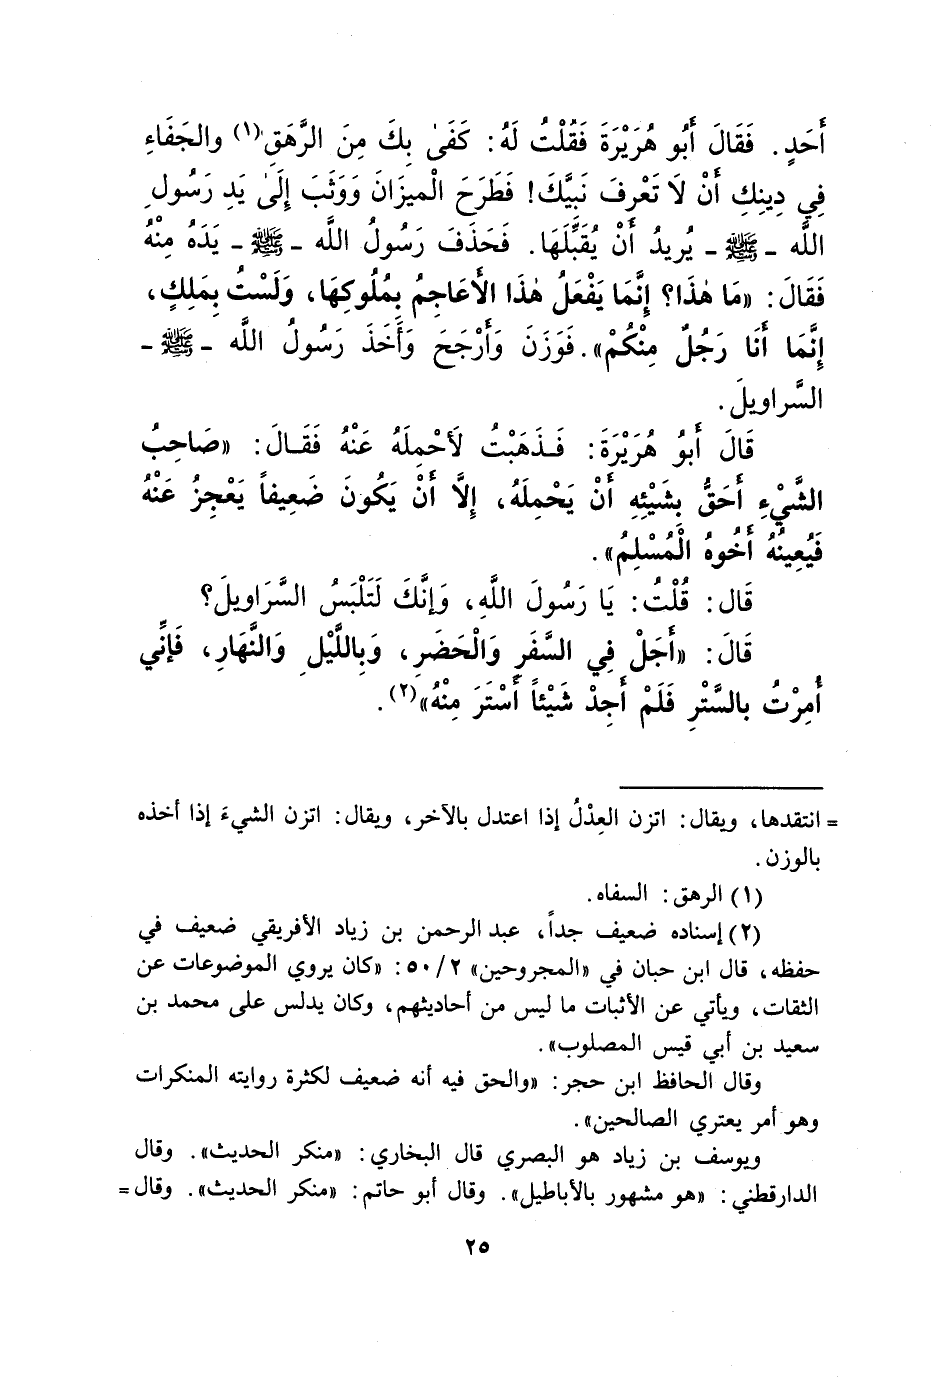 أَحَدٍ. فَقَالَ أَبُو هُرَيْرَةَ فَقُلْتُ لَهُ: كَفَىٰ بِكَ مِنَ الرَّهَقِ(١) والجَفَاءِ
فِي دِينِكِ أَنْ لَا تَعْرِفَ نَبِيَّكَ! فَطَرَحَ الْمِيزَانَ وَوَثَبَ إِلَىٰ يَدِ رَسُولِ
اللَّه - ﷺ - يُرِيدُ أَنْ يُقَبِّلَهَا. فَحَذَفَ رَسُولُ اللَّه - ﷺ - يَدَهُ مِنْهُ
فَقَالَ: «مَا هٰذَا؟ إِنَّمَا يَفْعَلُ هٰذَا الأَعَاجِمُ بِمُلُوكِهَا، وَلَسْتُ بِمَلِكٍ،
إِنَّمَا أَنَا رَجُلٌ مِنْكُمْ». فَوَزَنَ وَأَرْجَحَ وَأَخَذَ رَسُولُ اللَّه - ﷺ -
السَّراويلَ.
قَالَ أَبُو هُرَيْرَةَ: فَذَهَبْتُ لأَحْمِلَهُ عَنْهُ فَقَالَ: «صَاحِبُ
الشَّيْءِ أَحَقُّ بِشَيْئِهِ أَنْ يَحْمِلَهُ، إِلَّا أَنْ يَكُونَ ضَعِيفاً يَعْجِزُ عَنْهُ
فَيُعِينُهُ أَخُوهُ الْمُسْلِمُ».
قَال: قُلْتُ: يَا رَسُولَ اللَّهِ، وَإِنَّكَ لَتَلْبَسُ السَّرَاوِيلَ؟
قَالَ: «أَجَلْ فِي السَّفَرِ وَالْحَضَرِ، وَبِاللَّيْلِ وَالنَّهَارِ، فَإِنِّي
أُمِرْتُ بالسَّتْرِ فَلَمْ أَجِدْ شَيْئاً أَسْتَرَ مِنْهُ»(٢).
= انتقدها، ويقال: اتزن العِدْلُ إذا اعتدل بالآخر، ويقال: اتزن الشيءَ إذا أخذه
بالوزن.
(١) الرهق: السفاه.
(٢) إسناده ضعيف جداً، عبد الرحمن بن زياد الأفريقي ضعيف في
حفظه، قال ابن حبان في «المجروحين» ٢/ ٥٠: «كان يروي الموضوعات عن
الثقات، ويأتي عن الأثبات ما ليس من أحاديثهم، وكان يدلس على محمد بن
سعيد بن أبي قيس المصلوب».
وقال الحافظ ابن حجر: «والحق فيه أنه ضعيف لكثرة روايته المنكرات
وهو أمر يعتري الصالحين».
ويوسف بن زياد هو البصري قال البخاري: «منكر الحديث». وقال
الدارقطني: «هو مشهور بالأباطيل». وقال أبو حاتم: «منكر الحديث». وقال =
٢٥